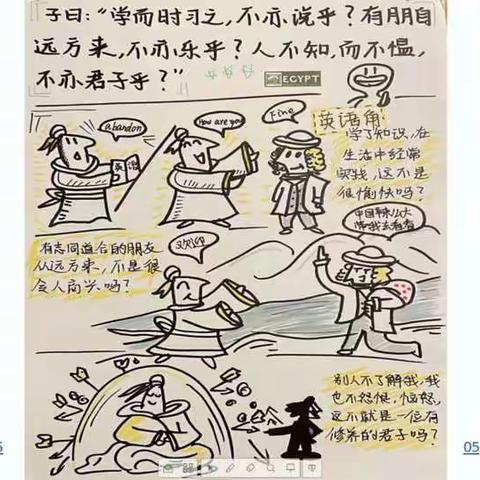 子曰：“学而时习之，不亦说乎？有朋自
远方来，不亦乐乎？人不知，而不愠，
不亦君子乎？”
EGYPT
abandon
英语
How are you
Fine
英语角
学了知识，在
生活中经常
实践，这不是
很愉快吗？
有志同道合的朋友
从远方来，不是很
令人高兴吗？
欢迎
带我去看看
别人不了解我，我
也不怨恨，恼怒，
这不就是一位有
修养的君子吗？
05